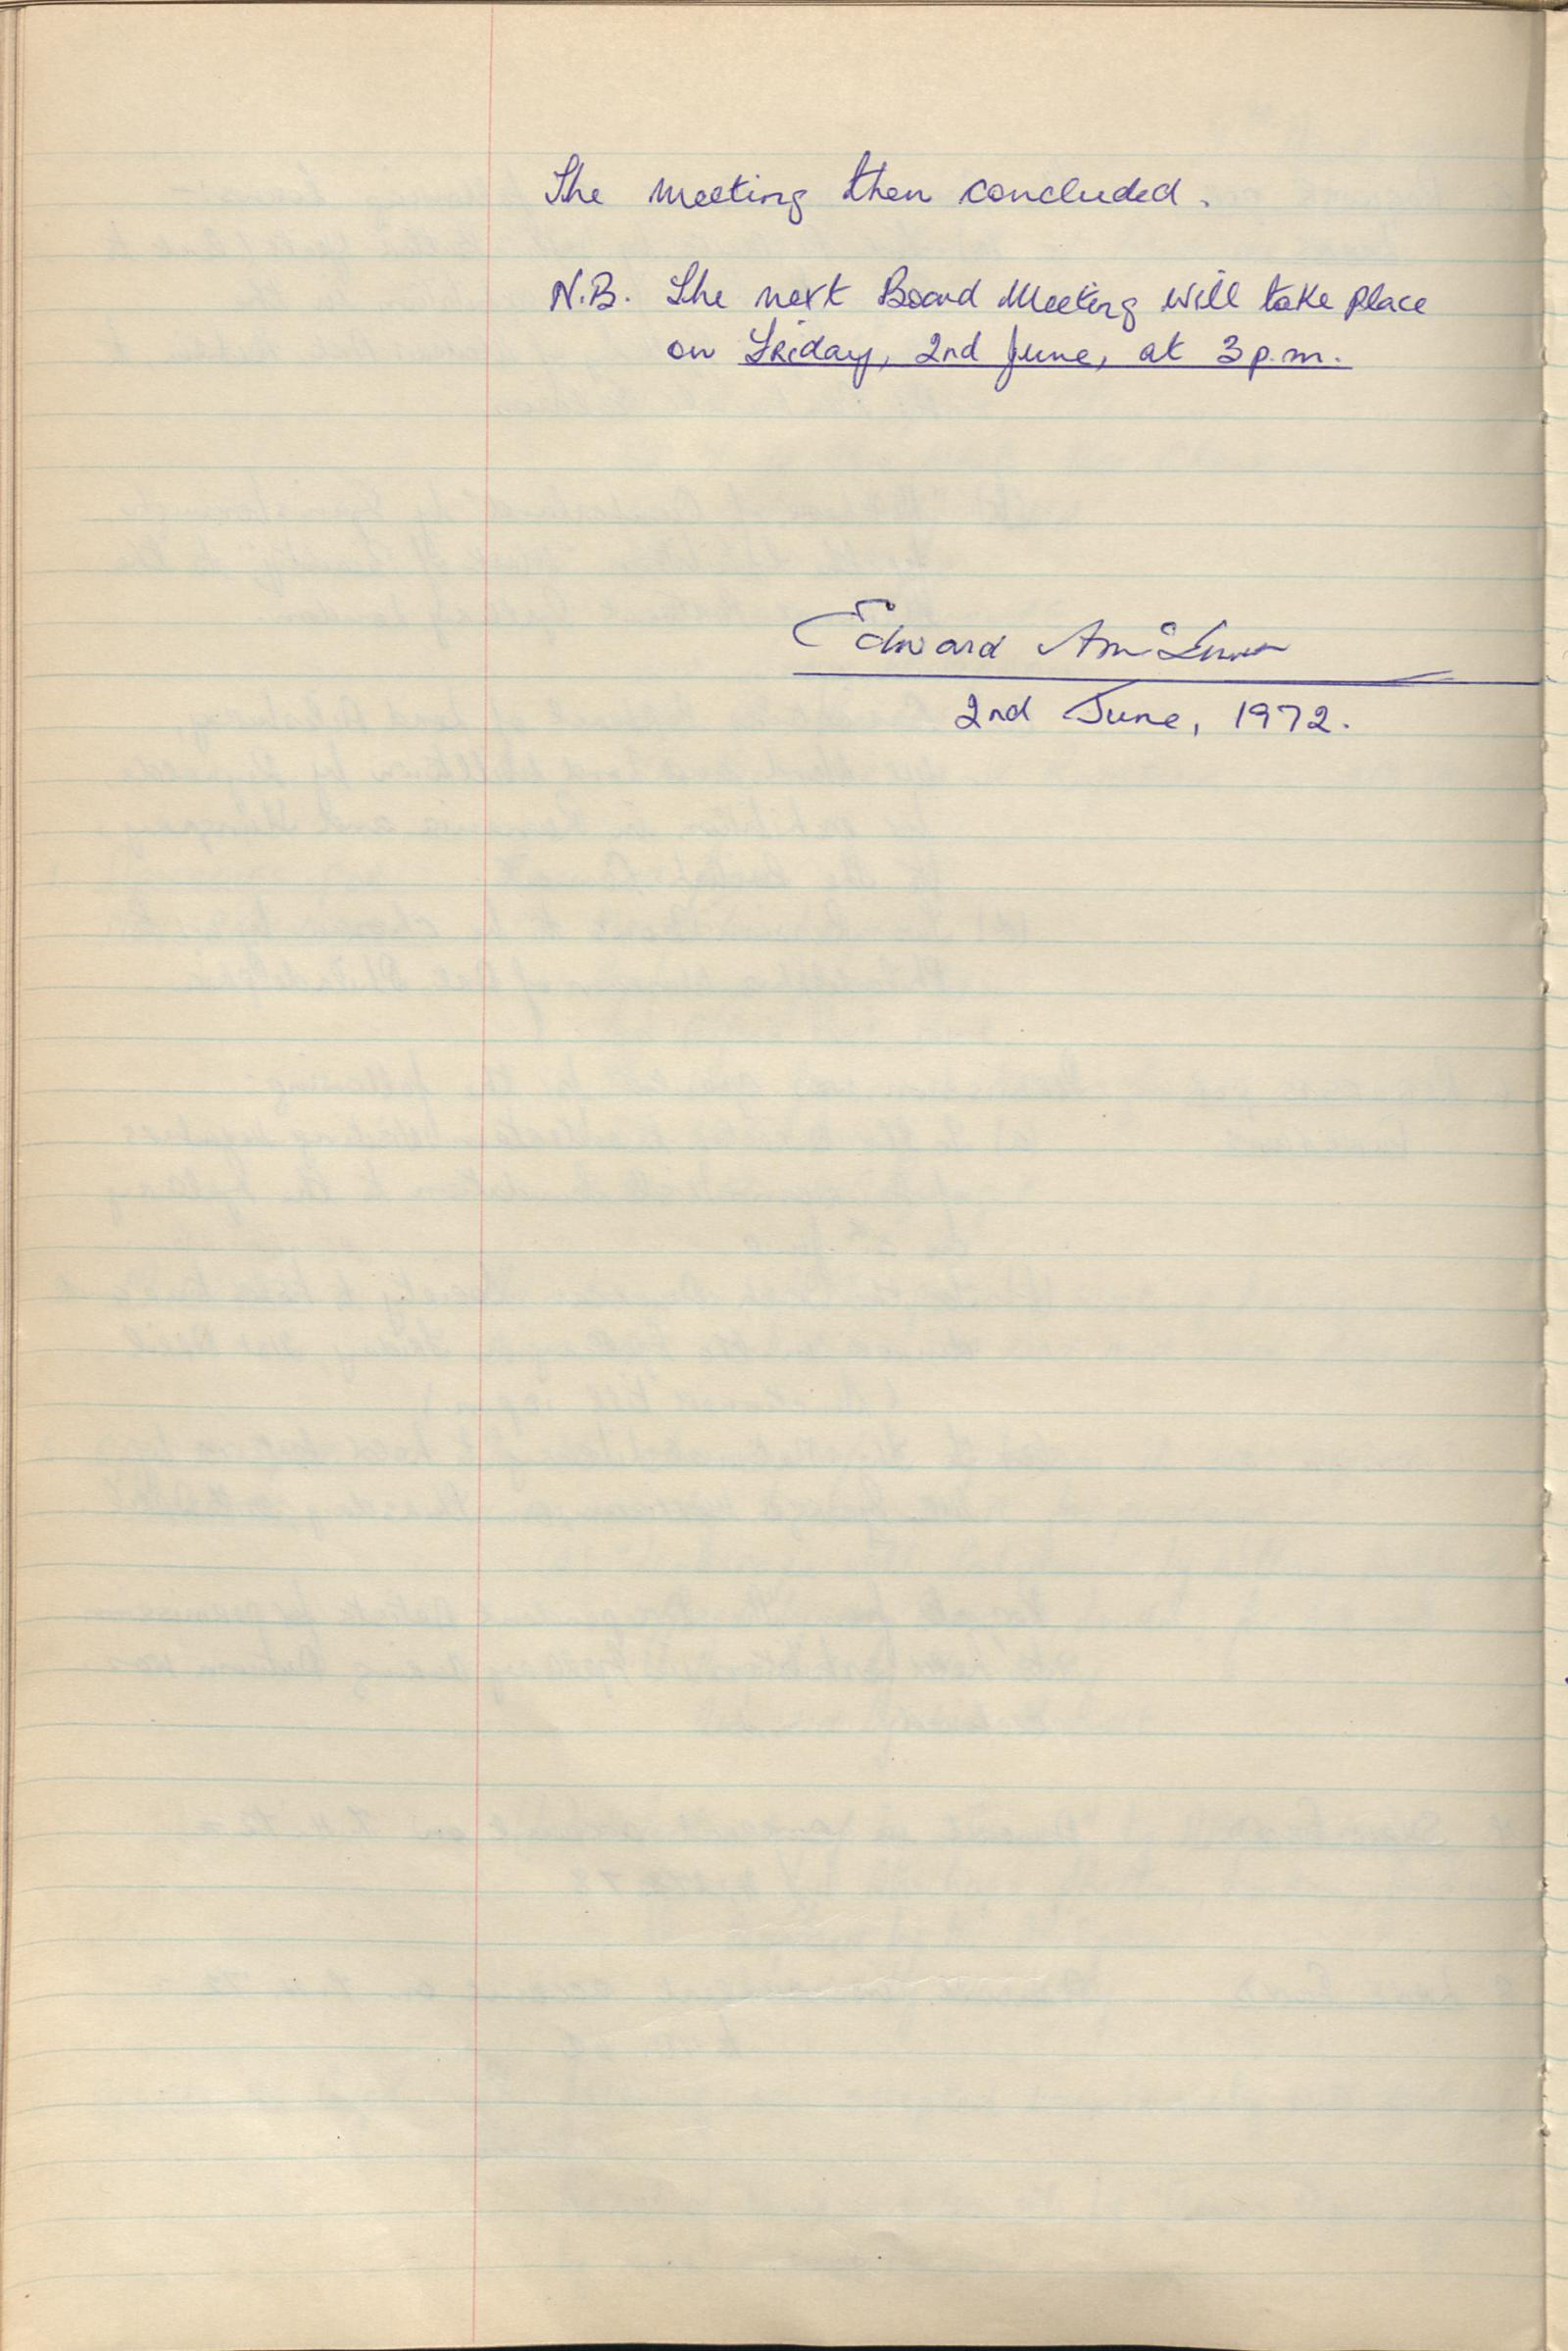 The meeting then concluded.
N.B. The next Board Meeting will take place
on Friday, 2nd June, at 3 p.m.
Edward
2nd June, 1972.